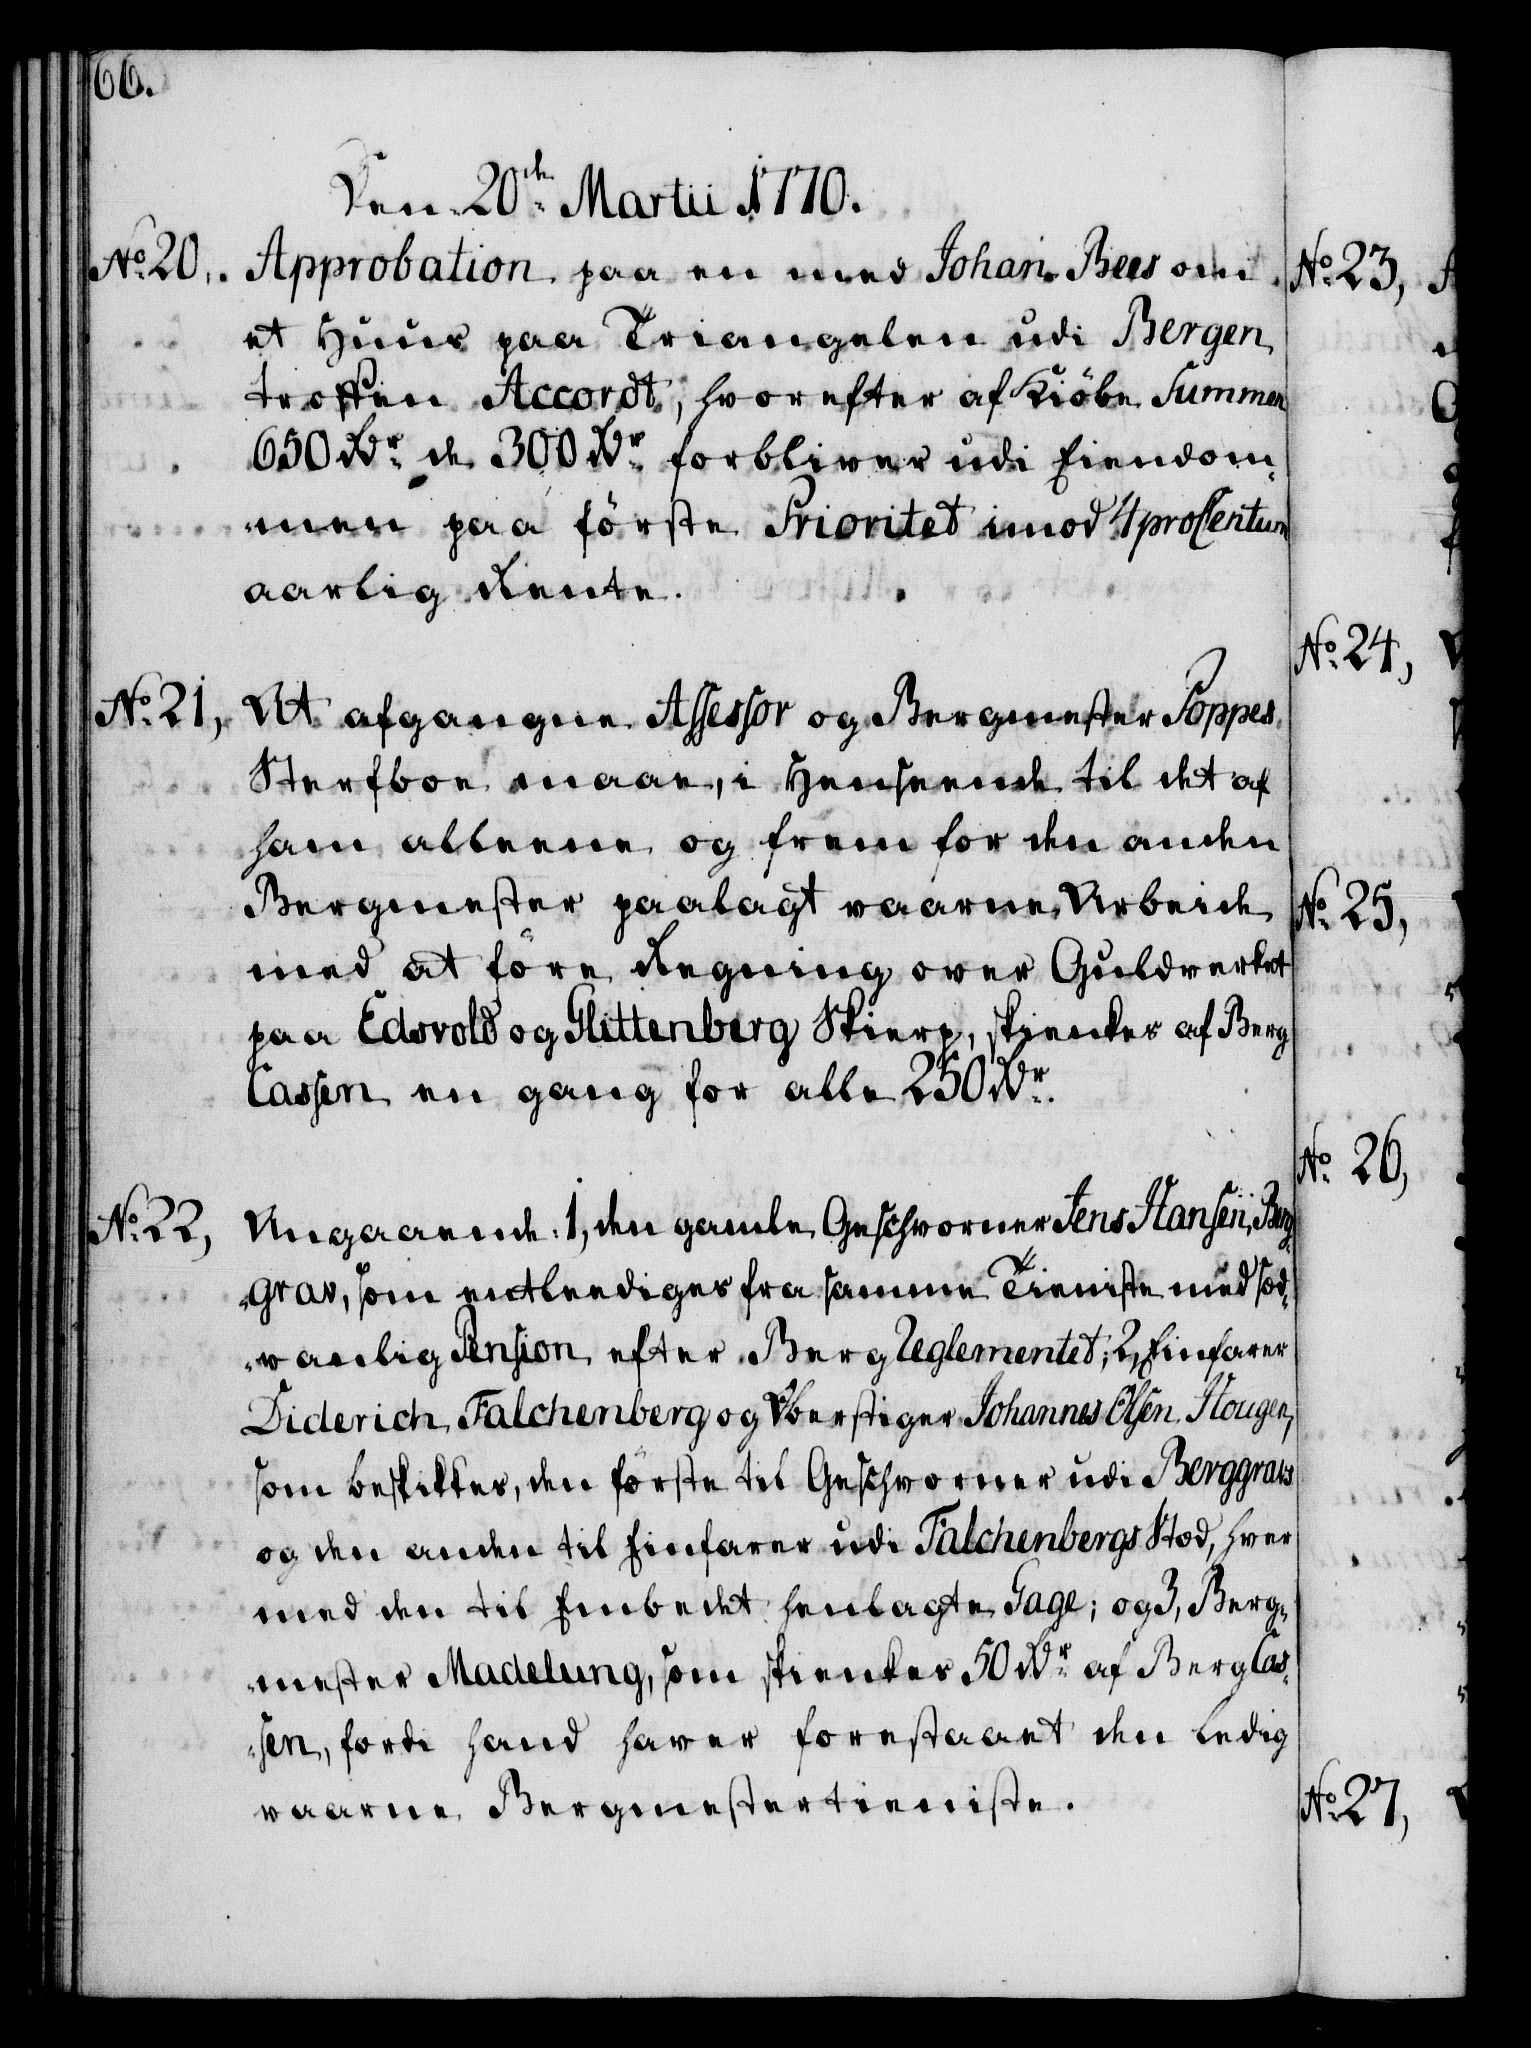 66.
Den 20de Martii 1770.
No. 20. Approbation paa en med Johan Bees om
et Huus paa Triangelen udi Bergen
troffen Accordt, hvorefter af Kiöbe Summen
650 Rdr. de 300 Rdr. forbliver udi Eiendom-
-men paa förste Prioritet imod 4 proCentum
aarlig Rente.
No. 21, At afgangne Assessor og Bergmester Poppes
Sterfboe maae, i Henseende til det af
ham alleene og frem for den anden
Bergmester paalagt vaarne Arbeide
med at före Regning over Guldverket
paa Edsvold og Glittenberg Skierp, skienkes af Berg
Cassen en gang for alle 250 Rdr.
No. 22, Angaaende: 1, den gamle Geschworner Jens Hansen, Berg-
-grav, som entleediges fra samme Tieniste med sæd-
-vanlig Pension efter Berg Reglementet; 2, Einfarer
Diderich Falchenberg og Oberstiger Johannes Olsen Hougen,
som beskikkes, den förste til Geschworner udi Berggravs
og den anden til Einfarer udi Falchenbergs Stæd, hver
med den til Embedet henlagte Gage; og 3, Berg-
-mester Madelung, som skienkes 50 Rdr. af Berg Cas-
-sen, fordi hand haver forestaaet den ledig
vaarne Bergmestertieniste.
No. 23,
No. 24,
No. 25,
No. 26,
No. 27,